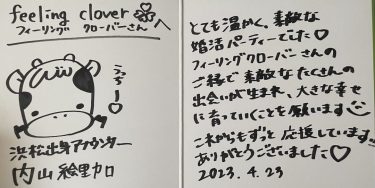 feeling clover
フィーリング クローバーさん
うっしー♡
浜松出身アナウンター
内山絵里加
とても温かく、素敵な
婚活パーティーでした♡
フィーリングクローバーさんの
ご縁で素敵なたくさんの
出会いが生まれ、大きな幸せ
に育っていくことを願います
これからもずっと応援しています
ありがとうございました♡
2023.4.23